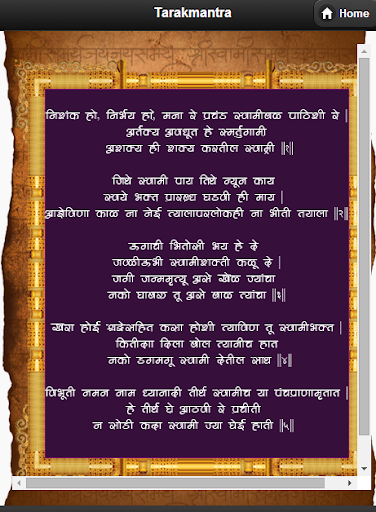 Tarakmantra
Home
निशंक हो, निर्भय हो, मना रे प्रचंड स्वामीबळ पाठिशी रे |
अतर्क्य अवधूत हे स्मर्तुगामी
अशक्य ही शक्य करतील स्वामी ||१||
जिथे स्वामी पाय तिथे न्यून काय
स्वये भक्त प्रारब्ध घडवी ही माय |
आज्ञेविणा काळ ना नेई त्यालापरलोकही ना भीती तयाला ||२||
उगाची भितोसी भय हे दे
जवळीऊभी स्वामीशक्ती कळू दे |
जगी जन्ममृत्यू असे खेळ ज्यांचा
नको घाबरू तू असे बाळ त्यांचा ||३||
खरा होई श्रद्धेसहित कसा होशी त्याविण तू स्वामीभक्त |
कितीदा दिला बोल त्यामीच हात
नको डगमगू स्वामी देतील साथ ||४||
विभूती नमन नाम ध्यानादी तीर्थ स्वामीच या पंचप्राणामृतात |
हे तीर्थ घे आठवी रे प्रचीती
न सोडी कदा स्वामी ज्या घेई हाती ||५||